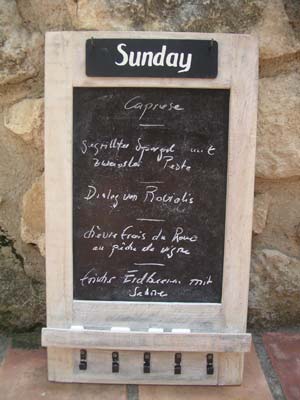 Sunday
Caprese
gegrillter Spargel mit
Pesto
Dialog von Raviolis
chèvre frais du
au pêche de vigne
frische Erdbeeren mit
Sahne